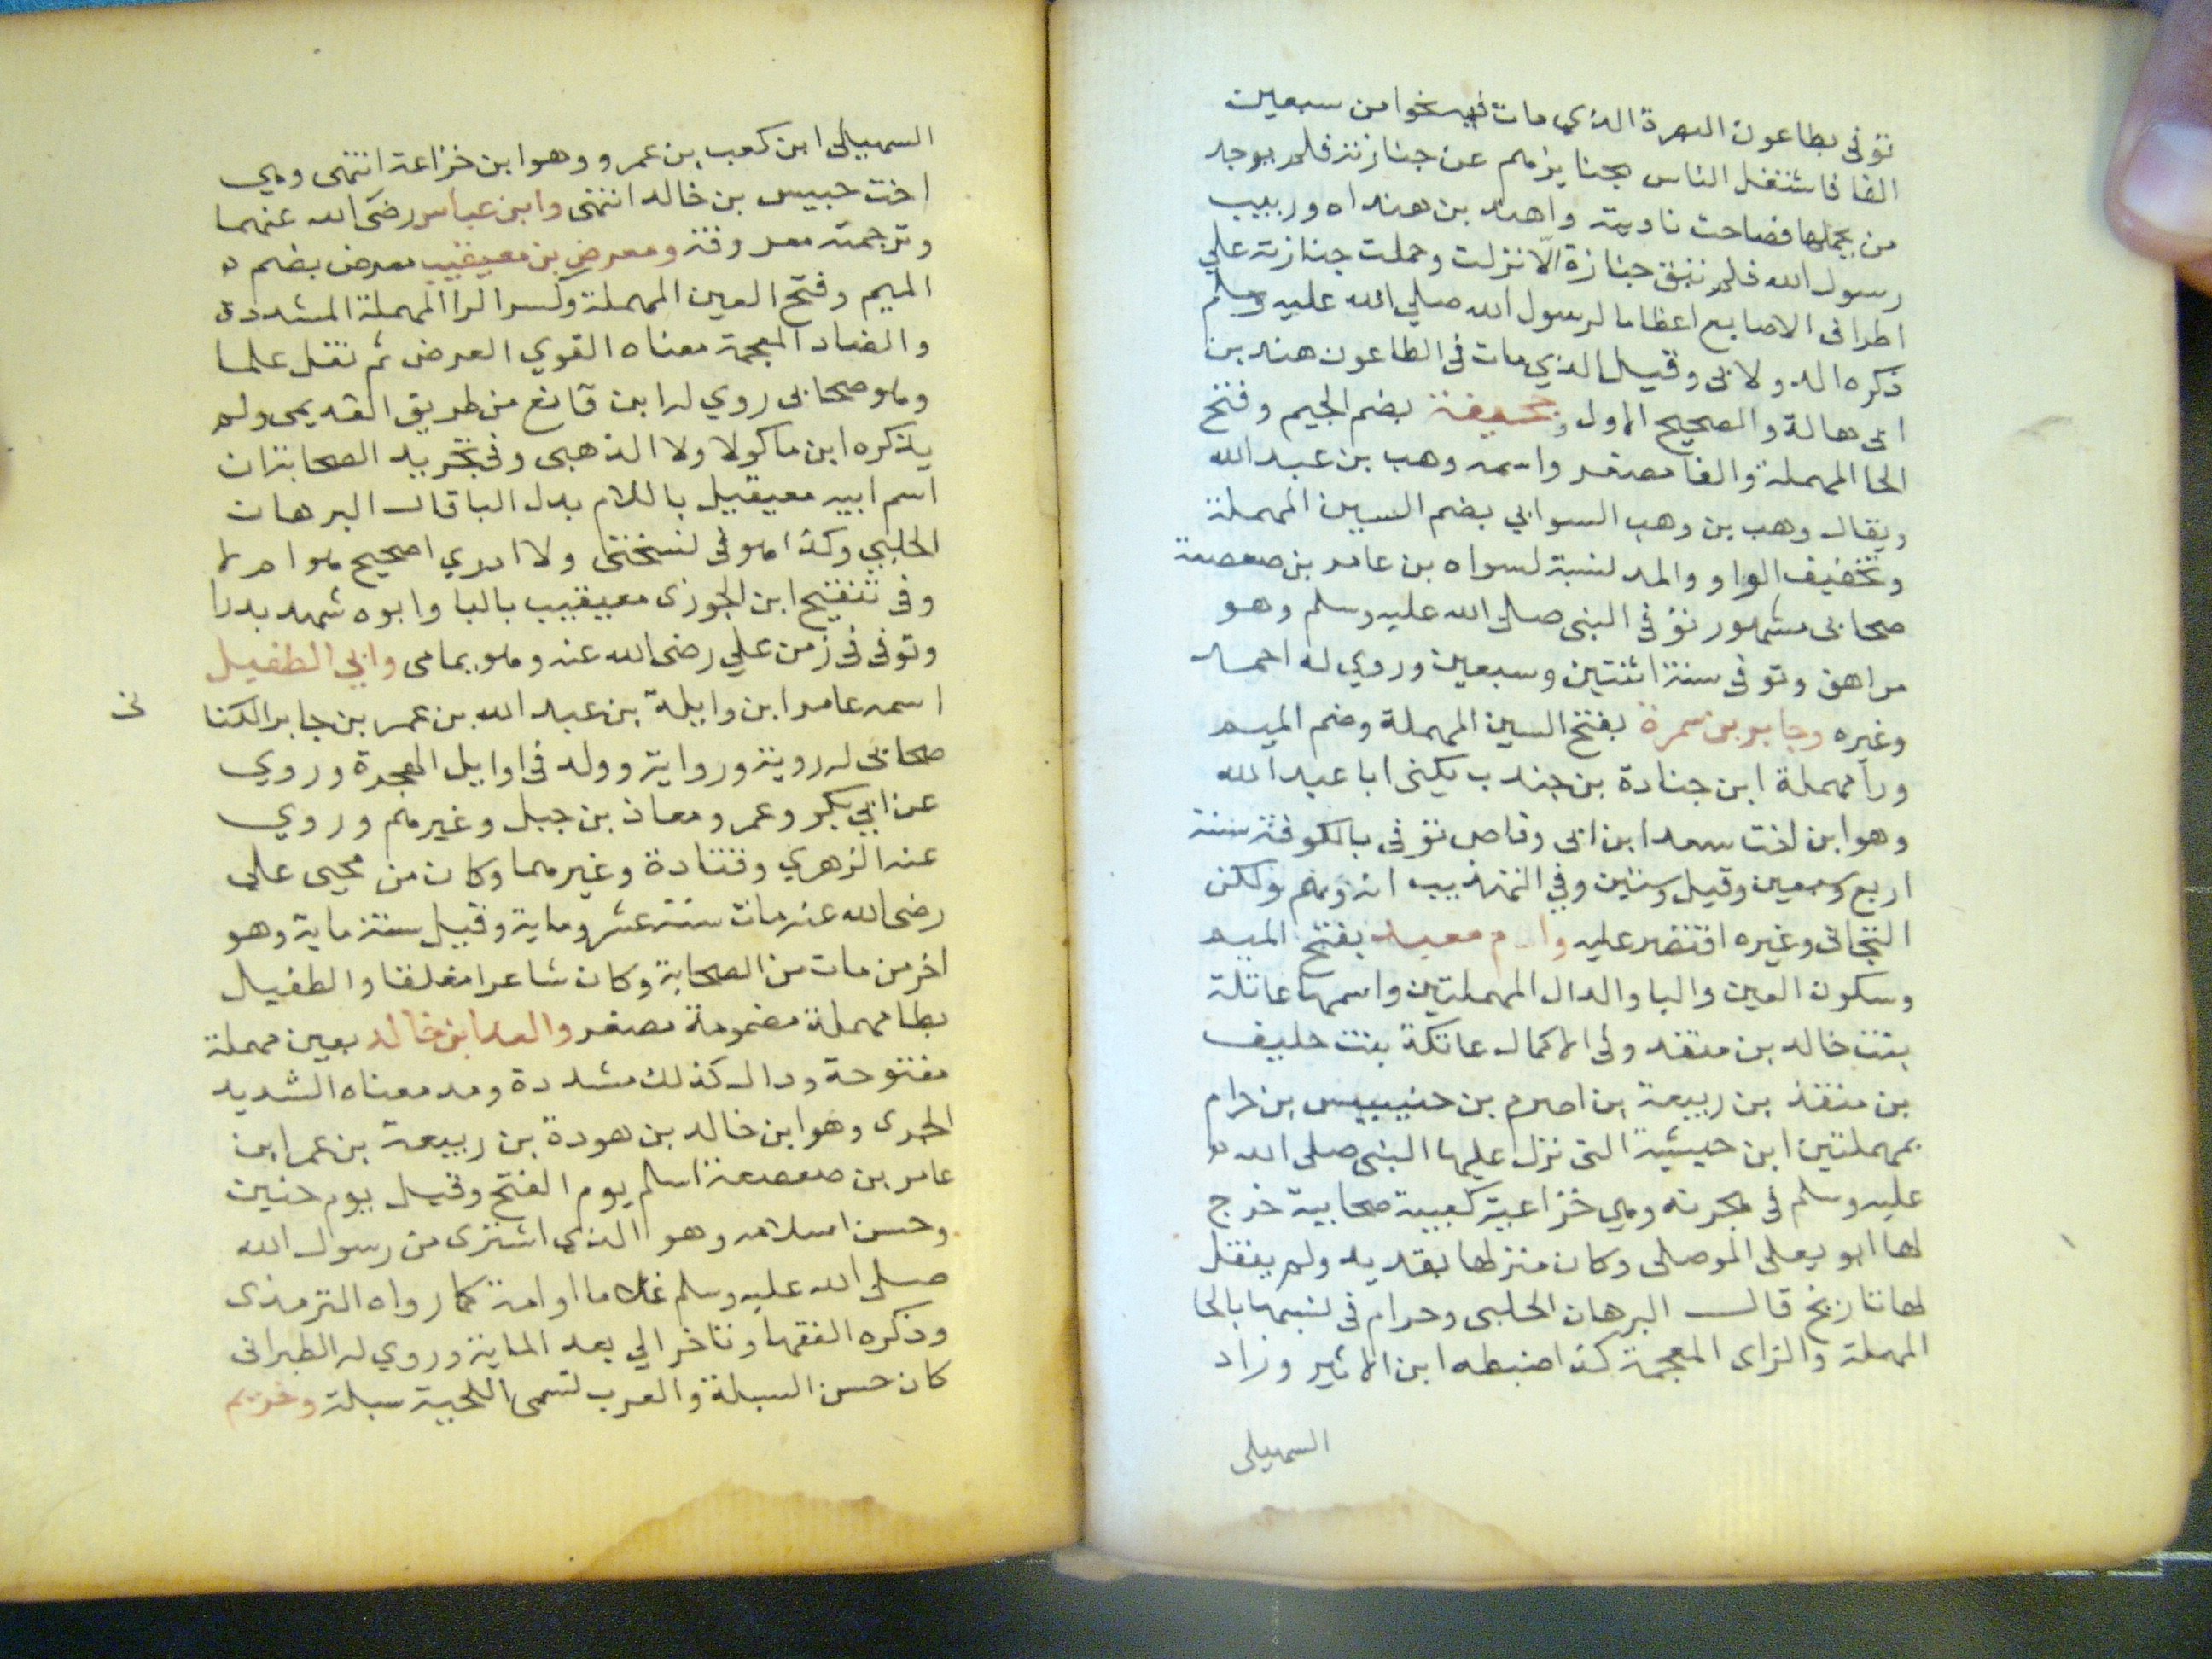 توفى بطاعون البصرة الذي مات فيه نحوا من سبعين
الفا فاشتغل الناس بجنايزهم عن جنازته فلم يوجد
من يحملها فصاحت نادبته واهند بن هنداه وربيب
رسول الله فلم تبق جنازة الا نزلت وحملت جنازته علي
اطراف الاصابع اعظاما لرسول الله صلي الله عليه وسلم
ذكره الدولابى وقيل الذي مات فى الطاعون هند بن
ابى هالة والصحيح الاول وجحيفة بضم الجيم وفتح
الحا المهملة والفا مصغر واسمه وهب بن عبد الله
ويقال وهب بن وهب السوايي بضم السين المهملة
وتخفيف الواو والمد نسبة لسواه بن عامر بن صعصعة
صحابى مشهور توفى النبى صلى الله عليه وسلم وهو
مراهق وتوفى سنة اثنتين وسبعين وروي له احمد
وغيره وجابر بن سمرة بفتح السين المهملة وضم الميم
ورا مهملة ابن جنادة بن جندب يكنى ابا عبد الله
وهو ابن اخت سعد ابن ابى وقاص توفى بالكوفة سنة
اربع وسبعين وقيل وستين وفي التهذيب انه وهم ولكن
التجانى وغيره اقتصر عليه وام معبد بفتح الميم
وسكون العين والبا والدال المهملتين واسمها عاتكة
بنت خالد بن منقد وفى الاكمال عاتكة بنت حليف
بن منقذ بن ربيعة بن اصرم بن حنيبيس بن حرام
بمهملتين ابن حبيشية التى نزل عليها النبى صلى الله
عليه وسلم فى هجرته وهي خزاعية كعبية صحابية خرج
لها ابو يعلى الموصلى وكان منزلها بقديد ولم ينقل
لها تاريخ قال البرهان الحلبى وحرام فى نسبها بالحا
المهملة والزاى المعجمة كذا ضبطه ابن الاثير وزاد
السهيلى
السهيلى ابن كعب بن عمرو وهو ابن خزاعة انتهى وهي
اخت حبيس بن خالد انتهى وابن عباس رضى الله عنهما
وترجمته معروفة ومعرض بن معيقيب معرض بضم
الميم وفتح العين المهملة وكسر الرا المهملة المشددة
والضاد المعجمة معناه القوي العرض ثم نقل علما
وهو صحابى روي له ابن قانع من طريق القديمى ولم
يذكره ابن ماكولا ولا الذهبى وفى تجريد الصحابة ان
اسم ابيه معيقيل باللام بدل البا قال البرهان
الحلبي وكذا هو فى نسختى ولا ادري اصحيح هو ام لا
وفى تنقيح ابن الجوزى معيقيب بالبا وابوه شهد بدرا
وتوفى فى زمن علي رضى الله عنه وهو يمامى وابي الطفيل
اسمه عامر ابن وايلة بن عبد الله بن عمر بن جابر الكنا
نى
صحابى له روية ورواية وولد فى اوايل الهجرة وروي
عن ابي بكر وعمر ومعاذ بن جبل وغيرهم وروي
عنه الزهري وقتادة وغيرهما وكان من محبى على
رضى الله عنه مات سنة عشر وماية وقيل سنة ماية وهو
اخر من مات من الصحابة وكان شاعرا مغلقا والطفيل
بطا مهملة مضمومة مصغر والعدا بن خالد بعين مهملة
مفتوحة ودال كذلك مشددة ومد معناه الشديد
الجرى وهو ابن خالد بن هودة بن ربيعة بن عمر ابن
عامر بن صعصعة اسلم يوم الفتح وقيل يوم حنين
وحسن اسلامه وهو الذي اشترى من رسول الله
صلى الله عليه وسلم غلاما او امة كما رواه الترمذى
وذكره الفقها وتاخر الي بعد الماية وروي له الطبرانى
كان حسن السبلة والعرب تسمى اللحية سبلة وخريم